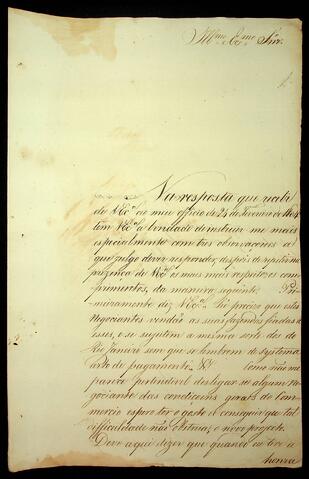 Illmo. Exmo. Snr.
Na resposta que recebi
de V. Exa. ao meu officio de 24 de Fevereiro
tem V. Exa. a bondade de instruir me mais
especialmente com tres observaçoens a
que julgo dever responder, depois de
prezença de V. Exa. os mais respeitos com
primentos, da maneira seguinte. Pri
meiramente diz V. Exa. he precizo que estes
Negociantes vendaõ as suas fazendas fiadas a
esses, e se sugeitem a mesma sorte dos do
Rio Janeiro sem que se lembrem do systema
de pagamento. &. Como naõ me
pareça pertendivel desligar se algum ne
gociante das condiçoens geraes do Com
mercio espero ter o gosto de conseguir que tal
difficuldade naõ obstará o novo projecto.
Devo aqui dizer que quando eu tive a
honra